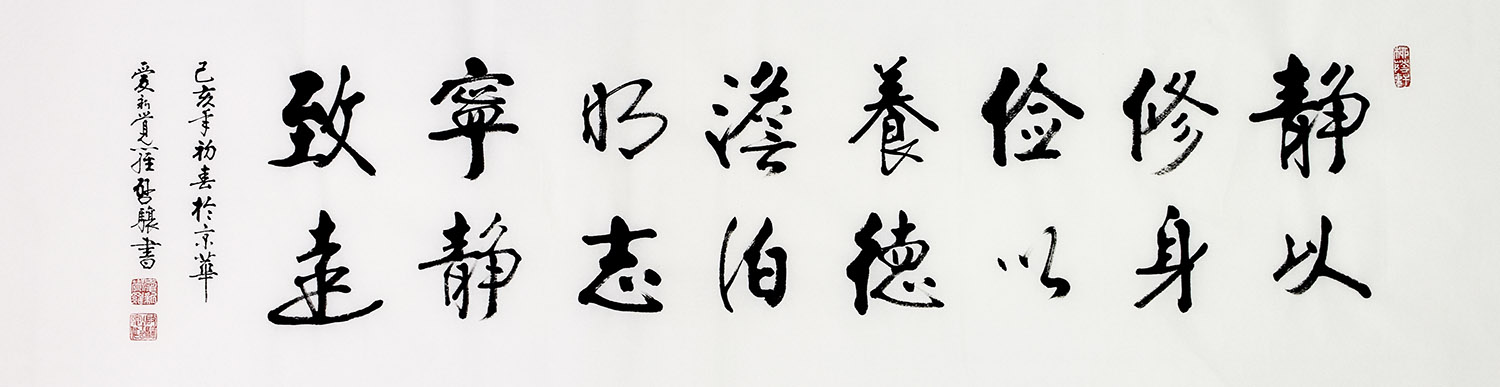 静以
修身
俭以
養德
澹泊
明志
寧静
致遠
己亥年初春於京華
愛新覺羅啓驤書